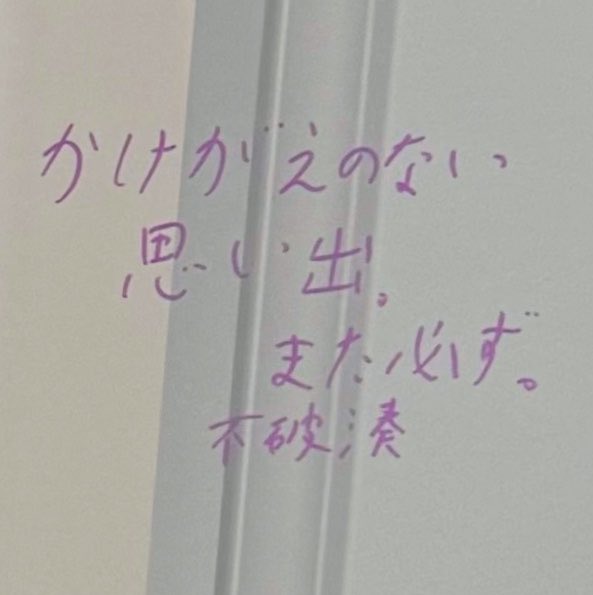 かけがえのない
思い出。
また必ず。
不破湊